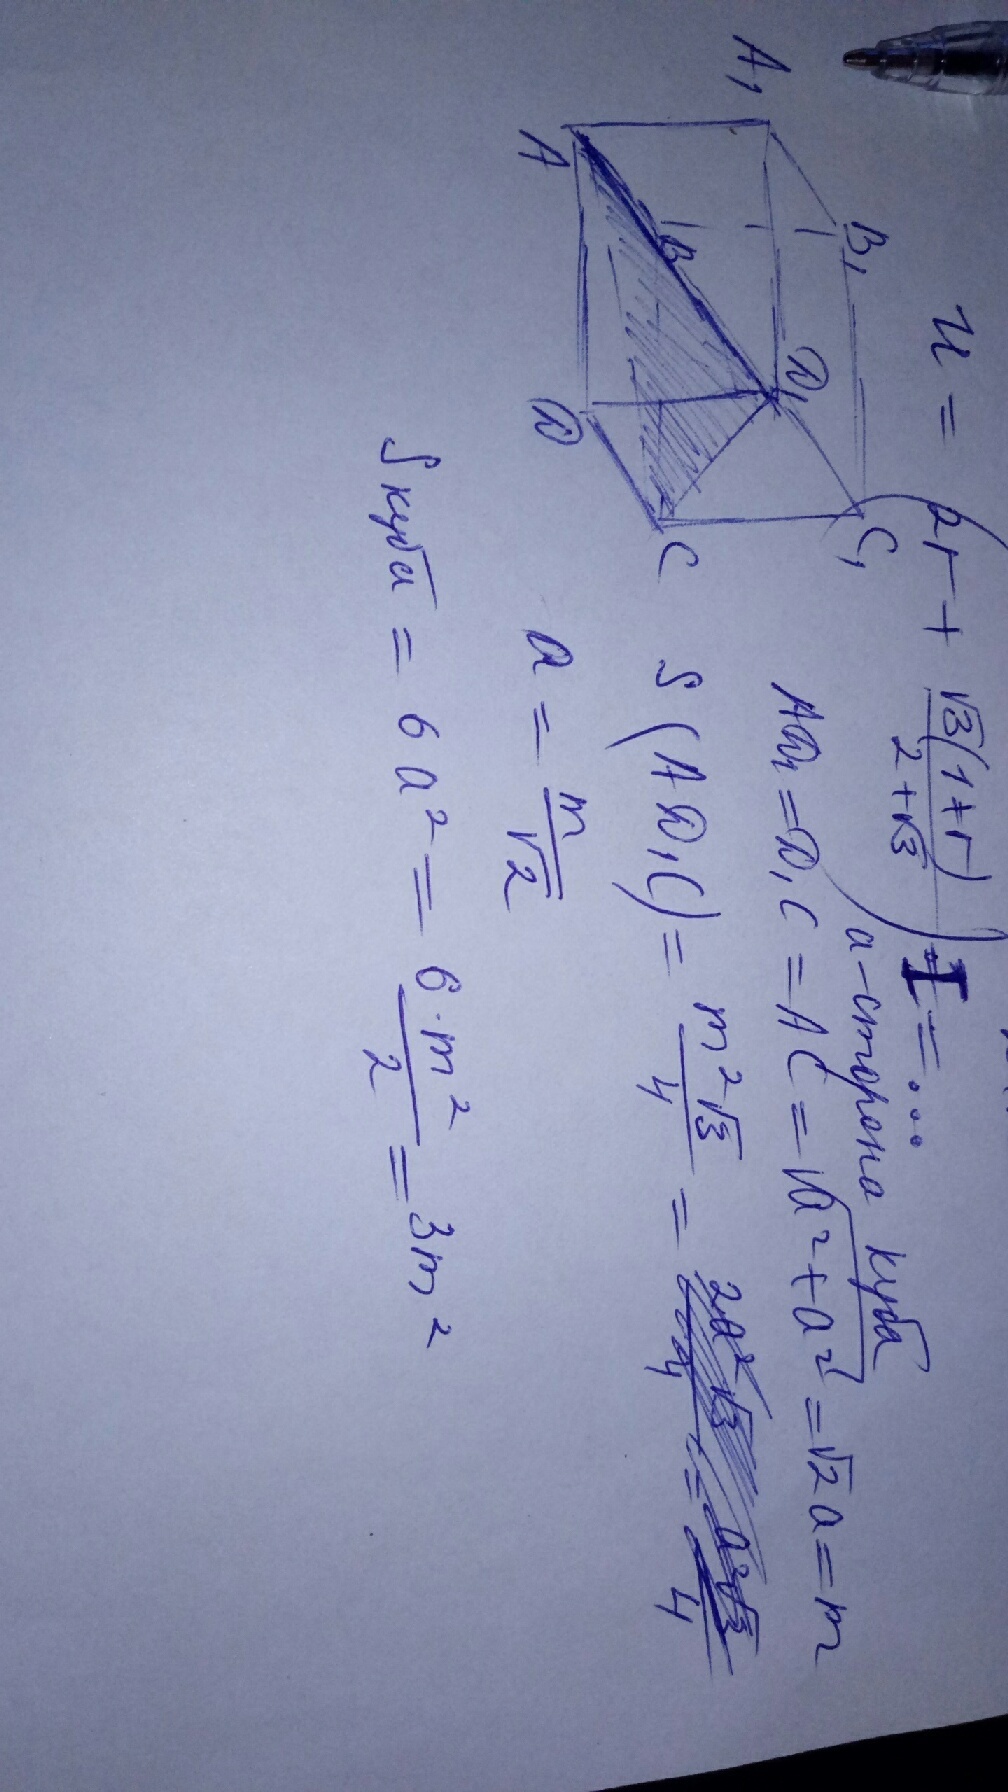 и = 2r + √3(1+r) / 2+√3 = ...
A₁ B₁ C₁ D₁
A B C D
a - сторона куба
AD₁ = D₁C = AC = √a²+a² = √2a = m
S(AD₁C) = m²√3 / 4 =
a = m / √2
S куба = 6a² = 6·m² / 2 = 3m²